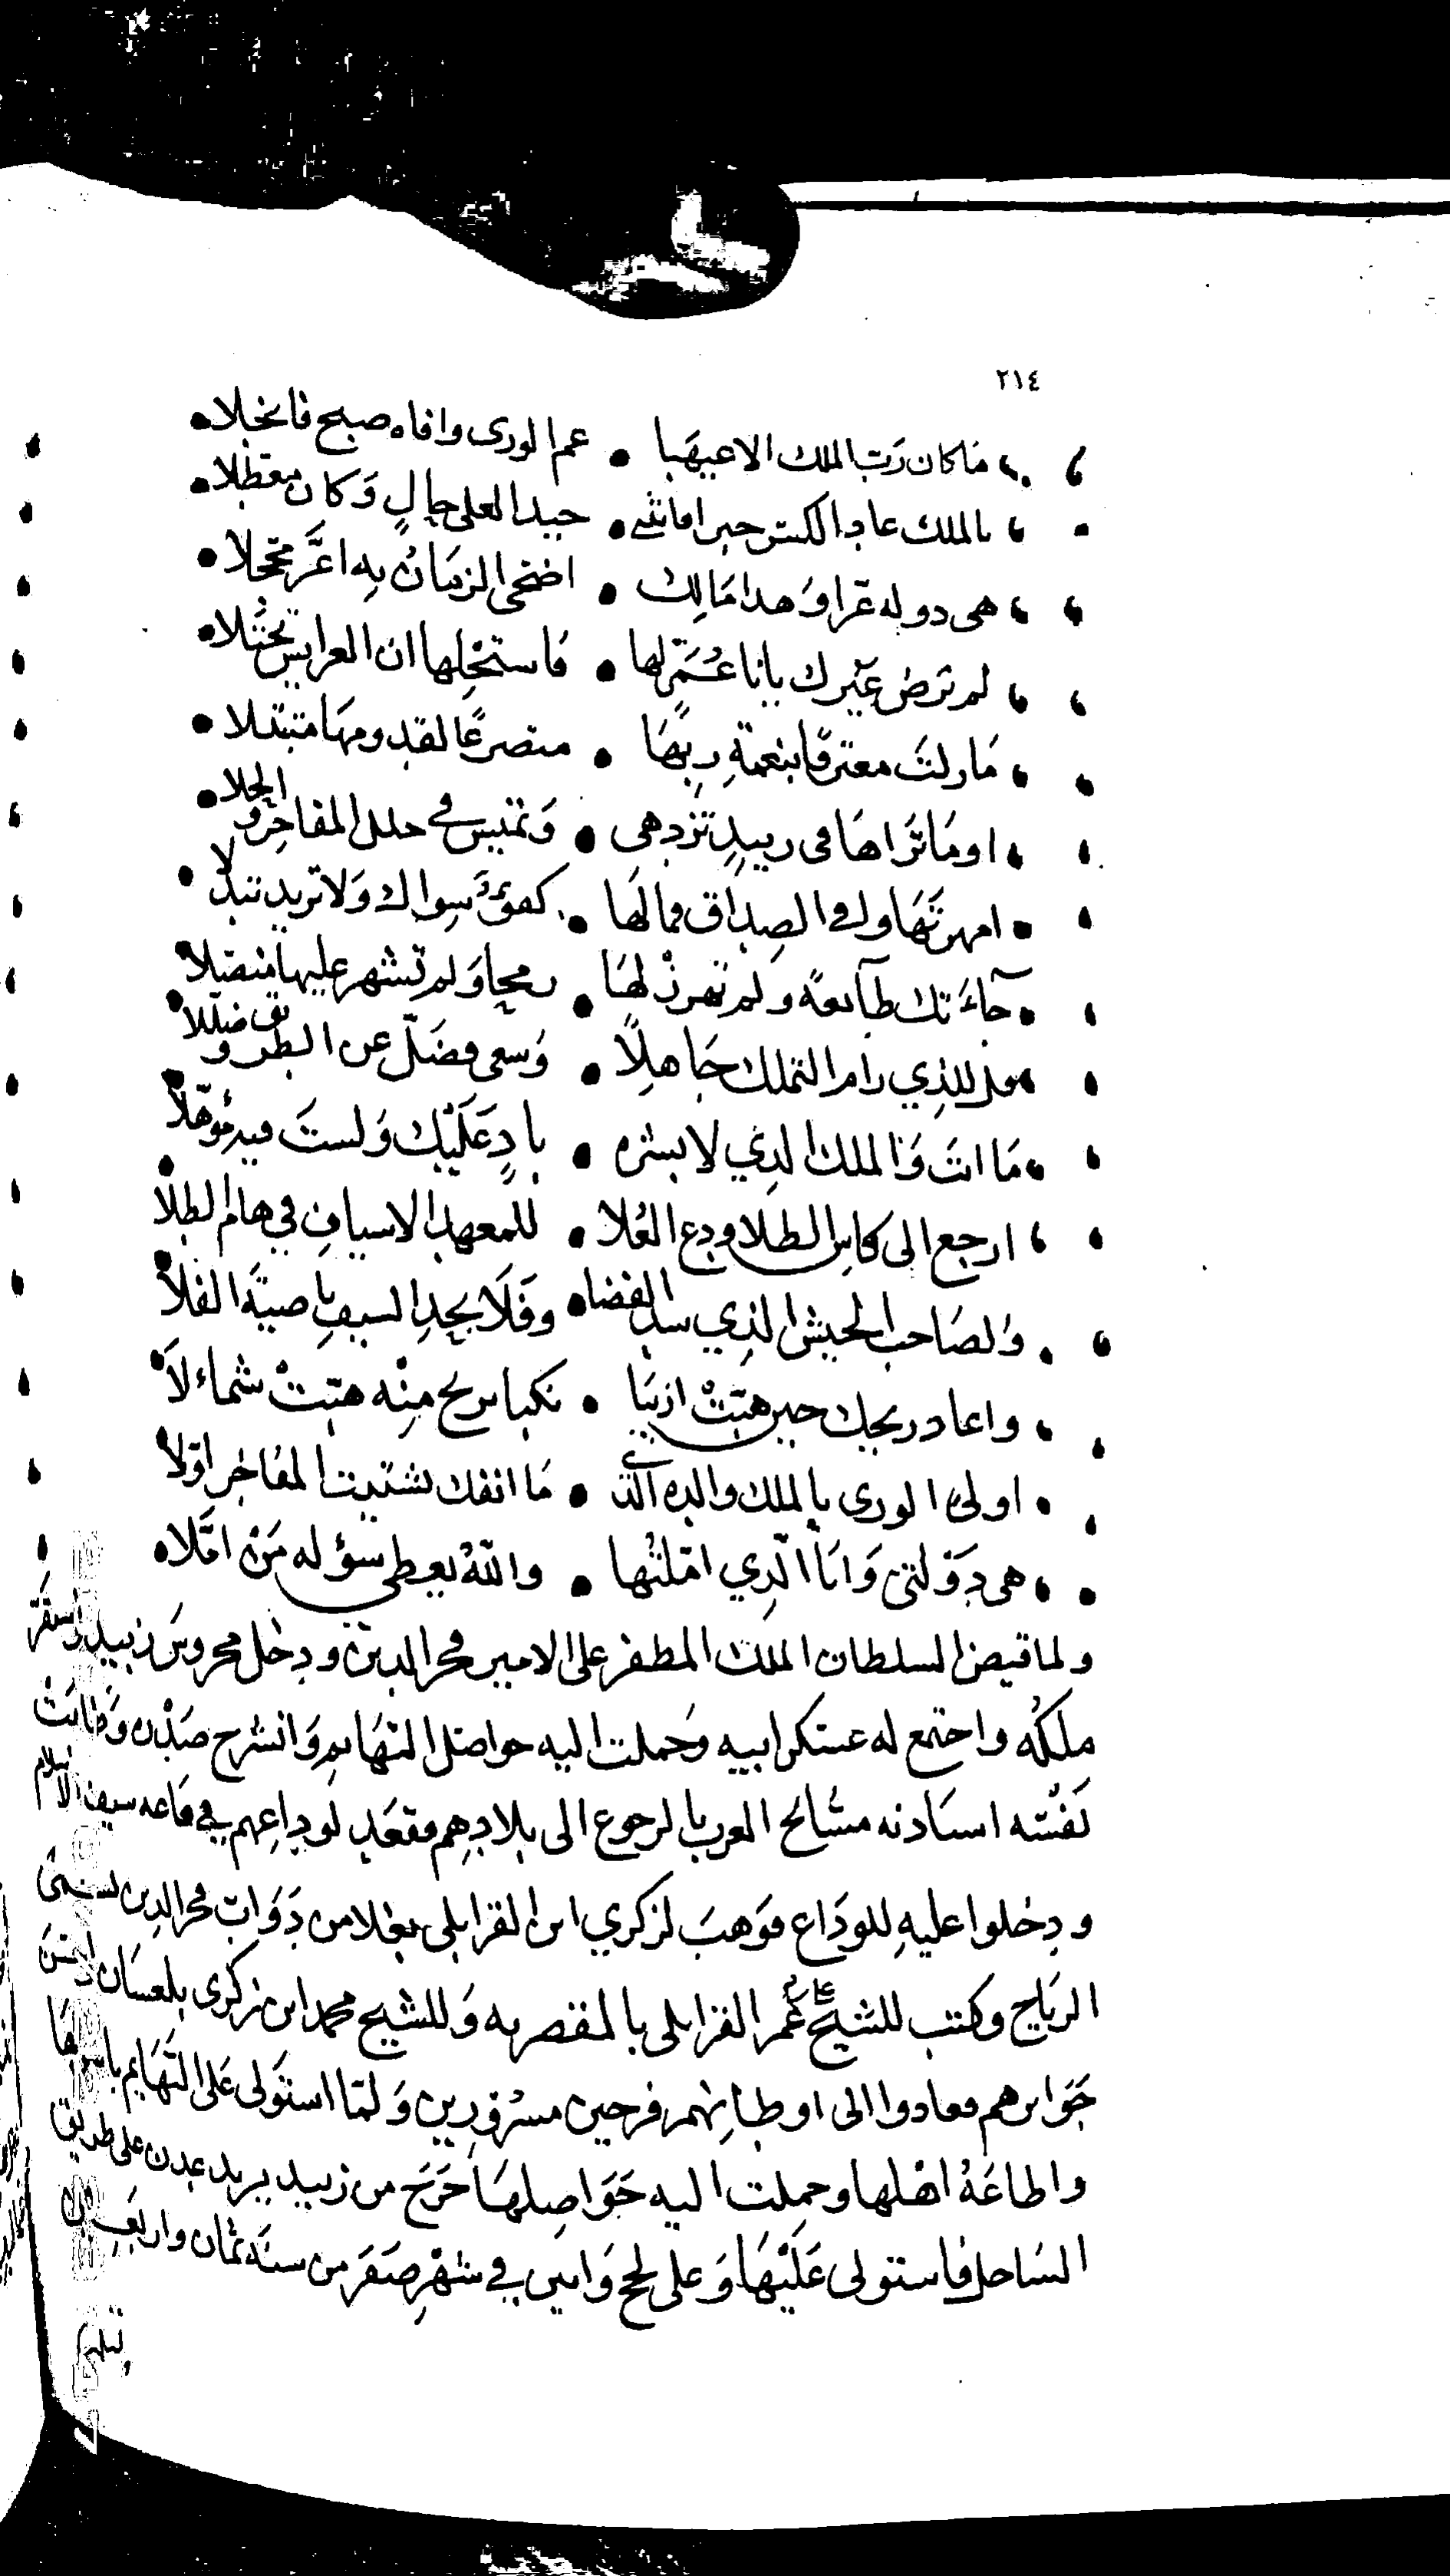 ٢١٤
ما كان رَبّ الملك الا غيهَبا • عم الورى وافاه صبح فانجلا •
بالملك عاد الكسر حين اماتني • جيد العلى حالٍ وَكان معَطلا •
هى دوله غرا وَهدا مَالِك • اضحى الزمَانُ بِه اغَرَّ محجلا •
لم ترض غيْرك يابا عُمَر لها • فاستجْلِها ان العرايس تجْتلا •
مَا زلتَ معترفًا بنعمَةِ رَبّهَا • متصرعًا لقدومهَا متبتلا •
اومَا تَرَاهَا فى زبيدٍ تزدهى • وَتميس في حلل المفاخِر والحلا •
امهرتَهَا ولها الصِدَاق فما لهَا • كفؤٌ سِواك وَلا تريد تبدلا •
جآءَتك طآىعةً ولم تهززْ لهَا • رمحا وَلم تشهر عليها منصلا •
قل للذِي رام التملك جَاهِلًا • وَسعى فضَلّ عن الطريق وضلّلا •
مَا انتَ وَالملك الذِي لا بشره • بادٍ عَلَيْك وَلستَ فيه مؤهّلا •
ارجع الى كاس الطلا ودع العُلا • للمعهد الاسيافِ في هام الطلا •
وَلصَاحب الجيش الذِي سد الفضاء • وفَلَا بحدِ السيفِ ناصيَة الفلا •
واعاد ريحك حين هبّتْ ازيبَا • نكبا بريح مِنْه هبّتْ شماءلا •
اولى الورى بالملك والده الذي • مَا انفك تشتيت المفاخر اوّلا •
هى دَوْلتى وَانَا الّذِي امّلتُها • واللهُ يعطى سؤله مَنْ امّلا •
ولما قبض السلطان الملك المظفر على الامير فخر الدين ودخل محروس زبيد واستقر
ملكُه واجتمع له عسكر ابيه وَحملت اليه حواصل التهَايم وَانشرح صَدْره وَطابتْ
نفسُه استاذنه مشَائخ العرب بالرجوع الى بلادِهِم فقعَد لوداعِهم في قاعه سيف الاسلام
ودخلوا عليهِ للودَاع فوَهبَ لزكري ابن القرابلى بغلا من دَوَاب فخر الدين يسمى
الرياح وكتب للشيخ على عُمر القرابلى بالمقصريه وَللشيخ محمد ابن زكرى بلعسَان واحسَن
جَوَايزهم فعادوا الى اوطانِهم فرحين مسرُورِين وَلمّا استَولى عَلى التهَايم باسرها
واطاعَهُ اهْلها وحملت اليه حَوَاصِلهَا خرَج من زبيد يريد عدن على طريق
السَاحل فاستولى عَلَيْهَا وَعلى لحج وَابين في شهْرِ صفَرَ من سنَة ثمان واربعين